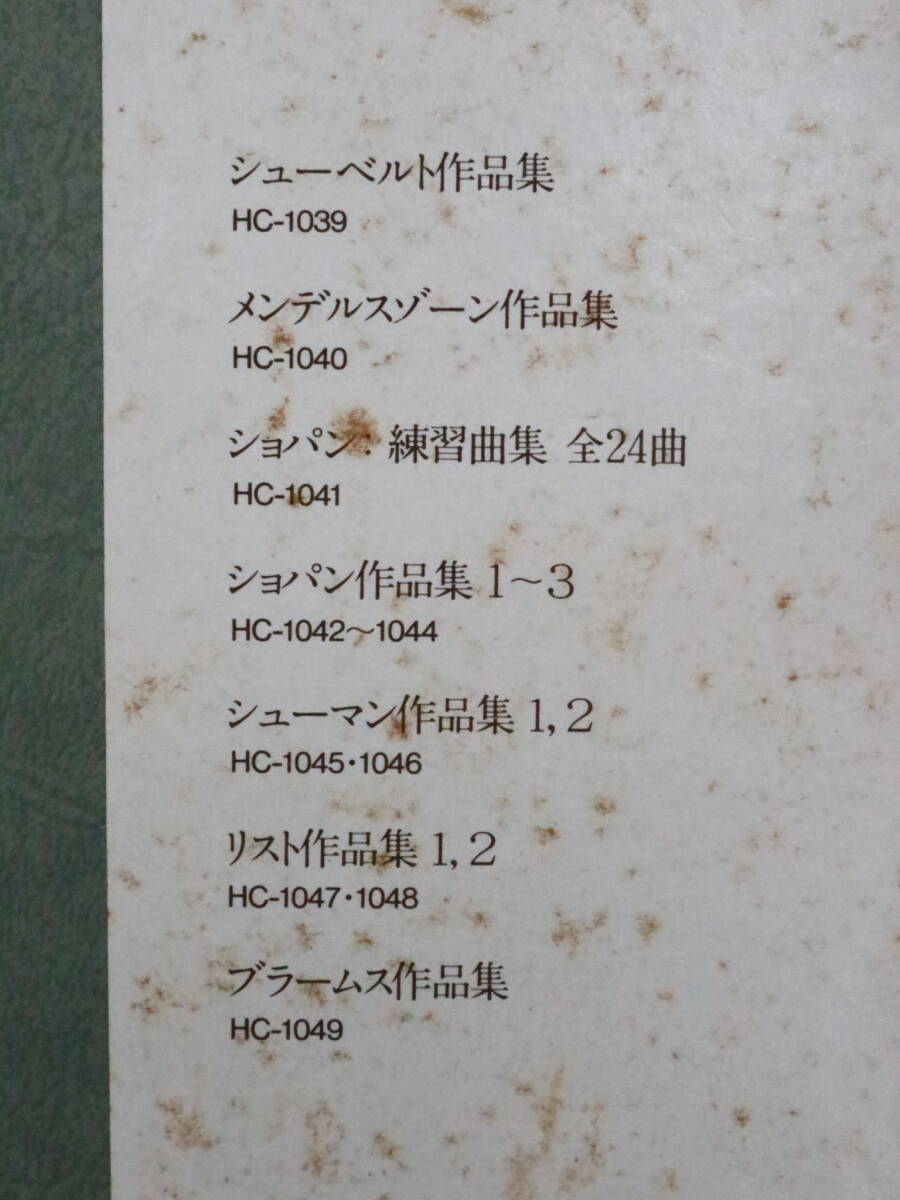 シューベルト作品集
HC-1039
メンデルスゾーン作品集
HC-1040
ショパン：練習曲集 全24曲
HC-1041
ショパン作品集 1〜3
HC-1042〜1044
シューマン作品集 1, 2
HC-1045・1046
リスト作品集 1, 2
HC-1047・1048
ブラームス作品集
HC-1049